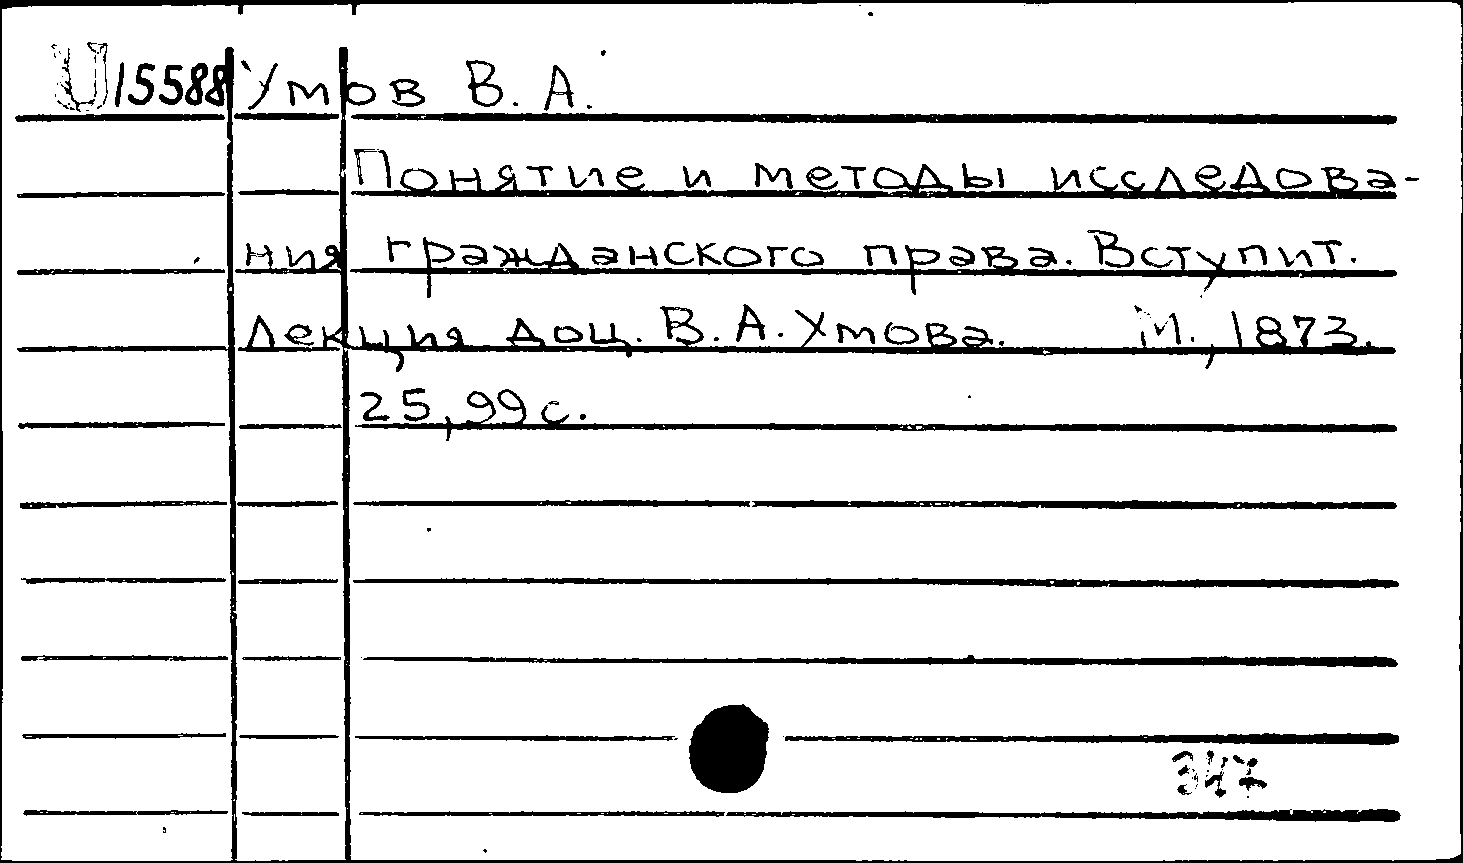 U 15588 Умов В. А.
Понятие и методы исследова-
ния гражданского права. Вступит.
лекция доц. В. А. Умова. М., 1873.
25,99 с.
347